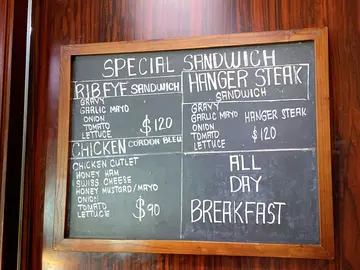 SPECIAL SANDWICH
RIBEYE SANDWICH
GRAVY
GARLIC MAYO
ONION
TOMATO
LETTUCE
$120
HANGER STEAK
SANDWICH
GRAVY
GARLIC MAYO
ONION
TOMATO
LETTUCE
HANGER STEAK
$120
CHICKEN CORDON BLEU
CHICKEN CUTLET
HONEY HAM
SWISS CHEESE
HONEY MUSTARD/MAYO
ONION
TOMATO
LETTUCE
$90
ALL
DAY
BREAKFAST